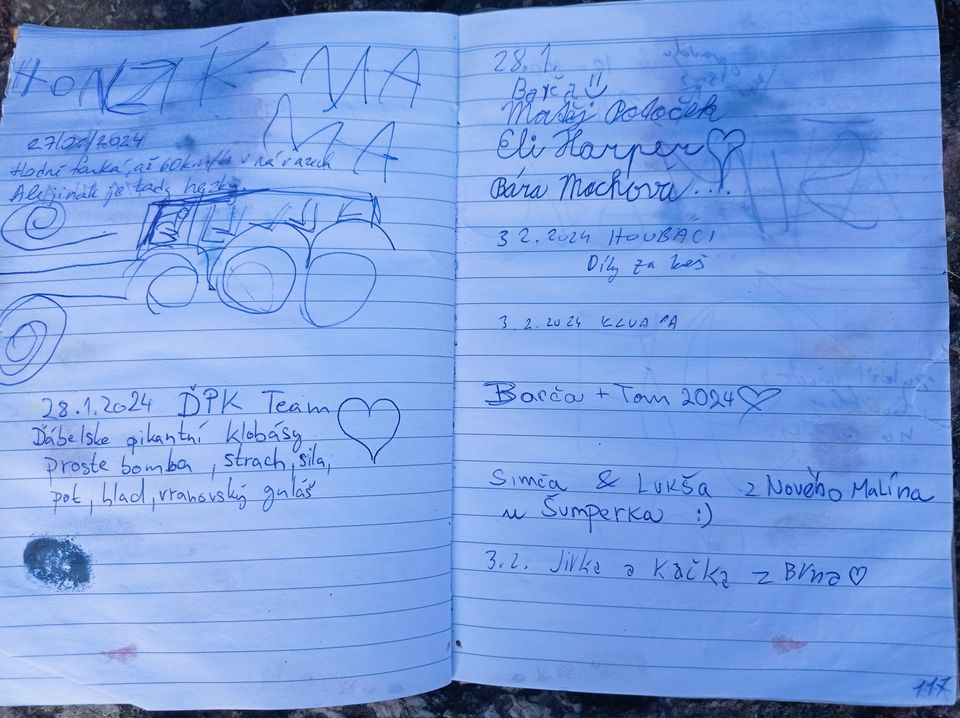 HONZÍK-MA
MA
27/01/2024
Hodně fouká, až 60km/h v nárazech
Ale jinak je tady hezky.
28.1.2024 ĎPK Team
Ďábelske pikantní klobásy
proste bomba, strach, sila,
pot, hlad, vranovský guláš
28.1.
Barča
Matěj Potoček
Eli Harper
Bára Mochova...
3.2.2024 HOUBACI
Díky za keš
3.2.2024
Barča + Tom 2024
Simča & Lukša z Nového Malína
u Šumperka :)
3.2. Jirka a Kačka z Brna
117